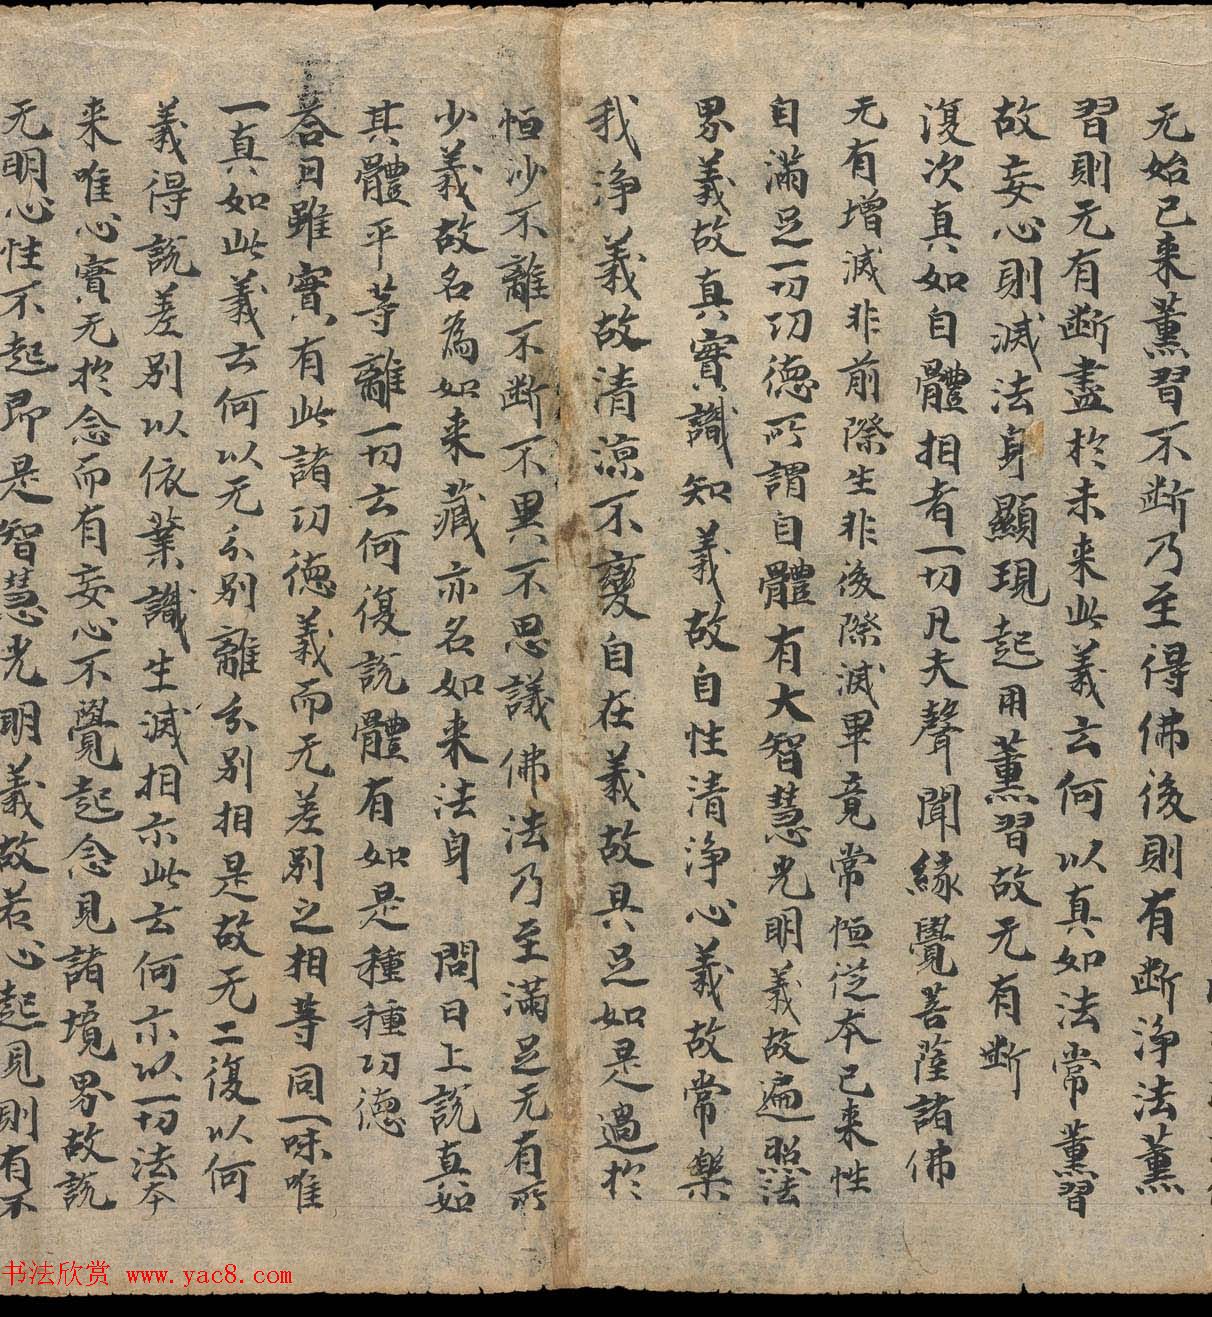 无始已来薰習不断乃至得佛後則有断淨法薰
習則无有断盡於未来此義云何以真如法常薰習
故妄心則滅法身顯現起用薰習故无有断
復次真如自體相者一切凡夫聲聞緣覺菩薩諸佛
无有增減非前際生非後際滅畢竟常恒從本已来性
自滿足一切功德所謂自體有大智慧光明義故遍照法
界義故真實識知義故自性清淨心義故常樂
我淨義故清涼不變自在義故具足如是過於
恒沙不離不断不異不思議佛法乃至滿足无有所
少義故名為如来藏亦名如来法身 問曰上說真如
其體平等離一切云何復說體有如是種種功德
荅曰雖實有此諸功德義而无差別之相等同一味唯
一真如此義云何以无分別離分別相是故无二復以何
義得說差別以依業識生滅相示此云何示以一切法本
来唯心實无於念而有妄心不覺起念見諸境界故說
无明心性不起即是智慧光明義故若心起見則有不
书法欣赏 www.yac8.com